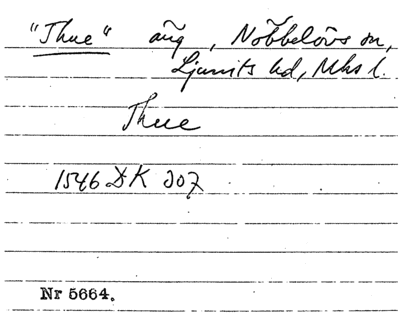 "Thue" äng, Nöbbelövs sn,
Ljunits hd, Mhs l.
Thue
1546 DK 207
Nr 5664.